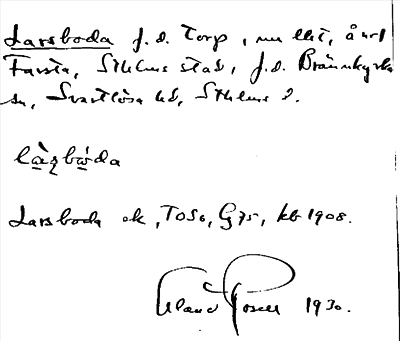 Larsboda f.d. Torp, nu lht, å nr1
Farsta, Sthlms stad, f.d. Brännkyrka
sn, Svartlösa hd, Sthlms l.
làꞩbὼda
Larsboda ek, TOS6, G75, kb 1908.
Erland Rosell 1930.